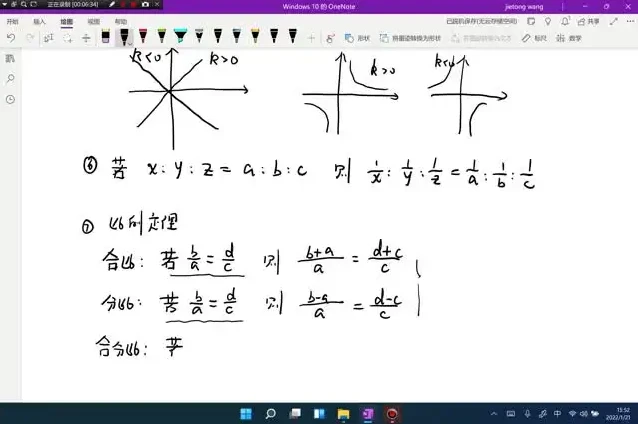 正在录制 [00:06:34]
Windows 10 的 OneNote
jietong wang
开始 插入 绘图 视图 帮助
已脱机保存(无云存储空间) 共享
形状 将墨迹转换为形状 标尺 数学
k<0 k>0 k>0 k<0
⑥ 若 x:y:z = a:b:c 则 1/x : 1/y : 1/z = 1/a : 1/b : 1/c
⑦ 比的定理
合比: 若 b/a = d/c 则 (b+a)/a = (d+c)/c
分比: 若 b/a = d/c 则 (b-a)/a = (d-c)/c
合分比: 若
中 15:52
2022/1/21